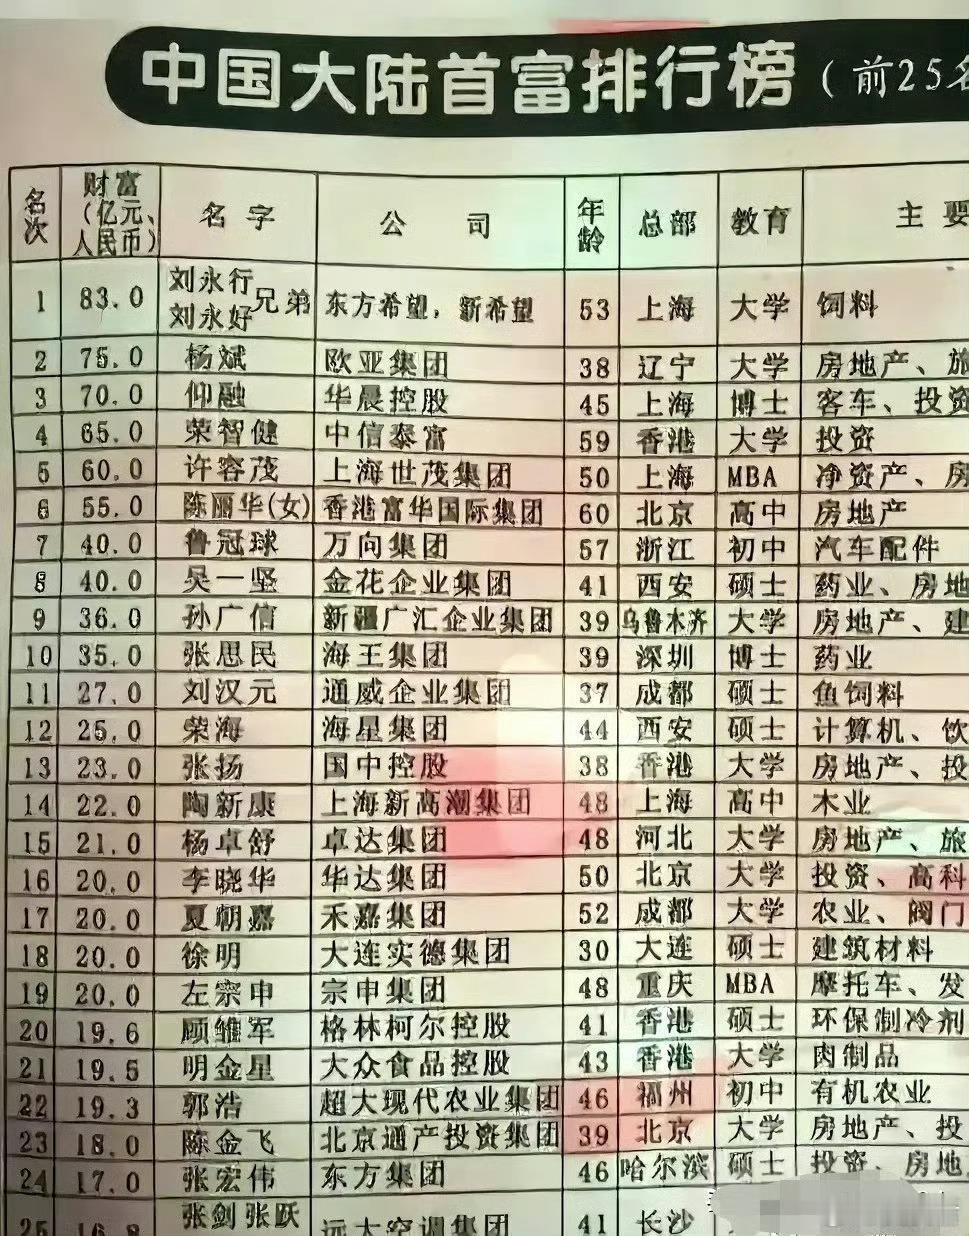 中国大陆首富排行榜（前25名
名次 财富（亿元、人民币） 名字 公司 年龄 总部 教育 主要
1 83.0 刘永行 刘永好 兄弟 东方希望，新希望 53 上海 大学 饲料
2 75.0 杨斌 欧亚集团 38 辽宁 大学 房地产、旅
3 70.0 仰融 华晨控股 45 上海 博士 客车、投资
4 65.0 荣智健 中信泰富 59 香港 大学 投资
5 60.0 许容茂 上海世茂集团 50 上海 MBA 净资产、房
6 55.0 陈丽华(女) 香港富华国际集团 60 北京 高中 房地产
7 40.0 鲁冠球 万向集团 57 浙江 初中 汽车配件
8 40.0 吴一坚 金花企业集团 41 西安 硕士 药业、房地
9 36.0 孙广信 新疆广汇企业集团 39 乌鲁木齐 大学 房地产、建
10 35.0 张思民 海王集团 39 深圳 博士 药业
11 27.0 刘汉元 通威企业集团 37 成都 硕士 鱼饲料
12 25.0 荣海 海星集团 44 西安 硕士 计算机、饮
13 23.0 张扬 国中控股 38 香港 大学 房地产、投
14 22.0 陶新康 上海新高潮集团 48 上海 高中 木业
15 21.0 杨卓舒 卓达集团 48 河北 大学 房地产、旅
16 20.0 李晓华 华达集团 50 北京 大学 投资、高科
17 20.0 夏朝嘉 禾嘉集团 52 成都 大学 农业、阀门
18 20.0 徐明 大连实德集团 30 大连 硕士 建筑材料
19 20.0 左宗申 宗申集团 48 重庆 MBA 摩托车、发
20 19.6 顾雏军 格林柯尔控股 41 香港 硕士 环保制冷剂
21 19.5 明金星 大众食品控股 43 香港 大学 肉制品
22 19.3 郭浩 超大现代农业集团 46 福州 初中 有机农业
23 18.0 陈金飞 北京通产投资集团 39 北京 大学 房地产、投
24 17.0 张宏伟 东方集团 46 哈尔滨 硕士 投资、房地
25 16.8 张剑 张跃 远大空调集团 41 长沙